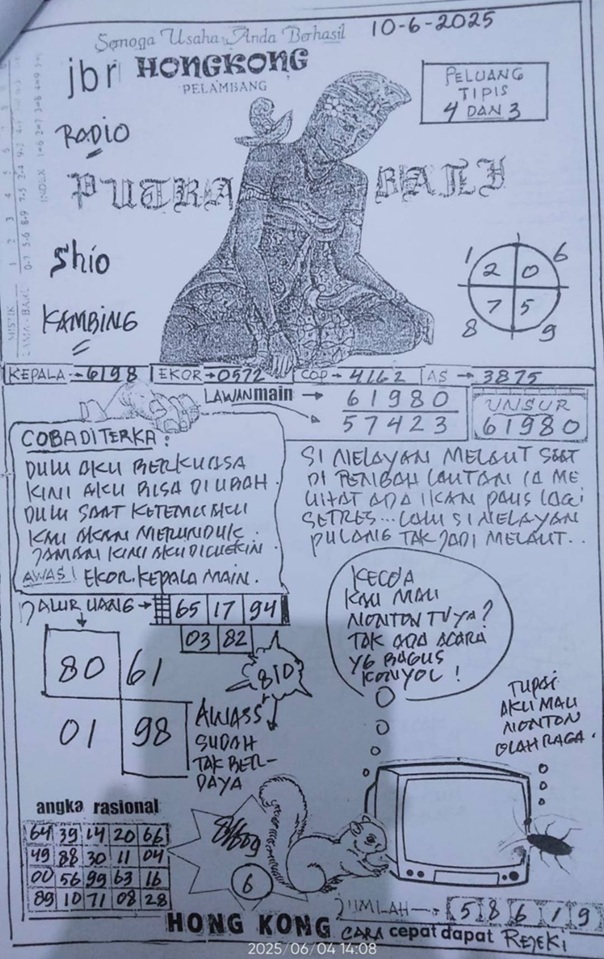 Semoga Usaha Anda Berhasil
10-6-2025
jbr HONGKONG
PELAMBANG
PELUANG
TIPIS
4 DAN 3
RADIO
PUTRA BALI
Shio
KAMBING
1 6
2 0
7 5
8 9
KEPALA → 6198 EKOR → 0572 COP → 4162 AS → 3875
LAWAN main → 61980
57423
UNSUR
61980
COBA DITERKA :
DULU AKU BERKUASA
KINI AKU BISA DIUBAH.
DULU SAAT KETEMU AKU
KAU AKAN MERUNDUK.
ZAMAN KINI AKU DICUEKIN.
AWAS! EKOR.KEPALA MAIN.
SI NELAYAN MELAUT SAAT
DI TENGAH LAUTAN IA ME
LIHAT ADA IKAN PAUS LAGI
SETRES... LALU SI NELAYAN
PULANG TAK JADI MELAUT..
JALUR UANG → 65 17 94
03 82
80 61
01 98
810
AWASS
SUDAH
TAK BER-
DAYA
KECOA
KAU MAU
NONTON TV YA?
TAK ADA ACARA
YG BAGUS
KONYOL!
TUPAI
AKU MAU
NONTON
OLAH RAGA.
angka rasional
64 39 14 20 66
49 88 30 11 04
00 56 99 63 16
89 10 71 08 28
6
JUMLAH → 5 8 6 1 9
HONG KONG CARA cepat dapat REJEKI
2025/06/04 14:08